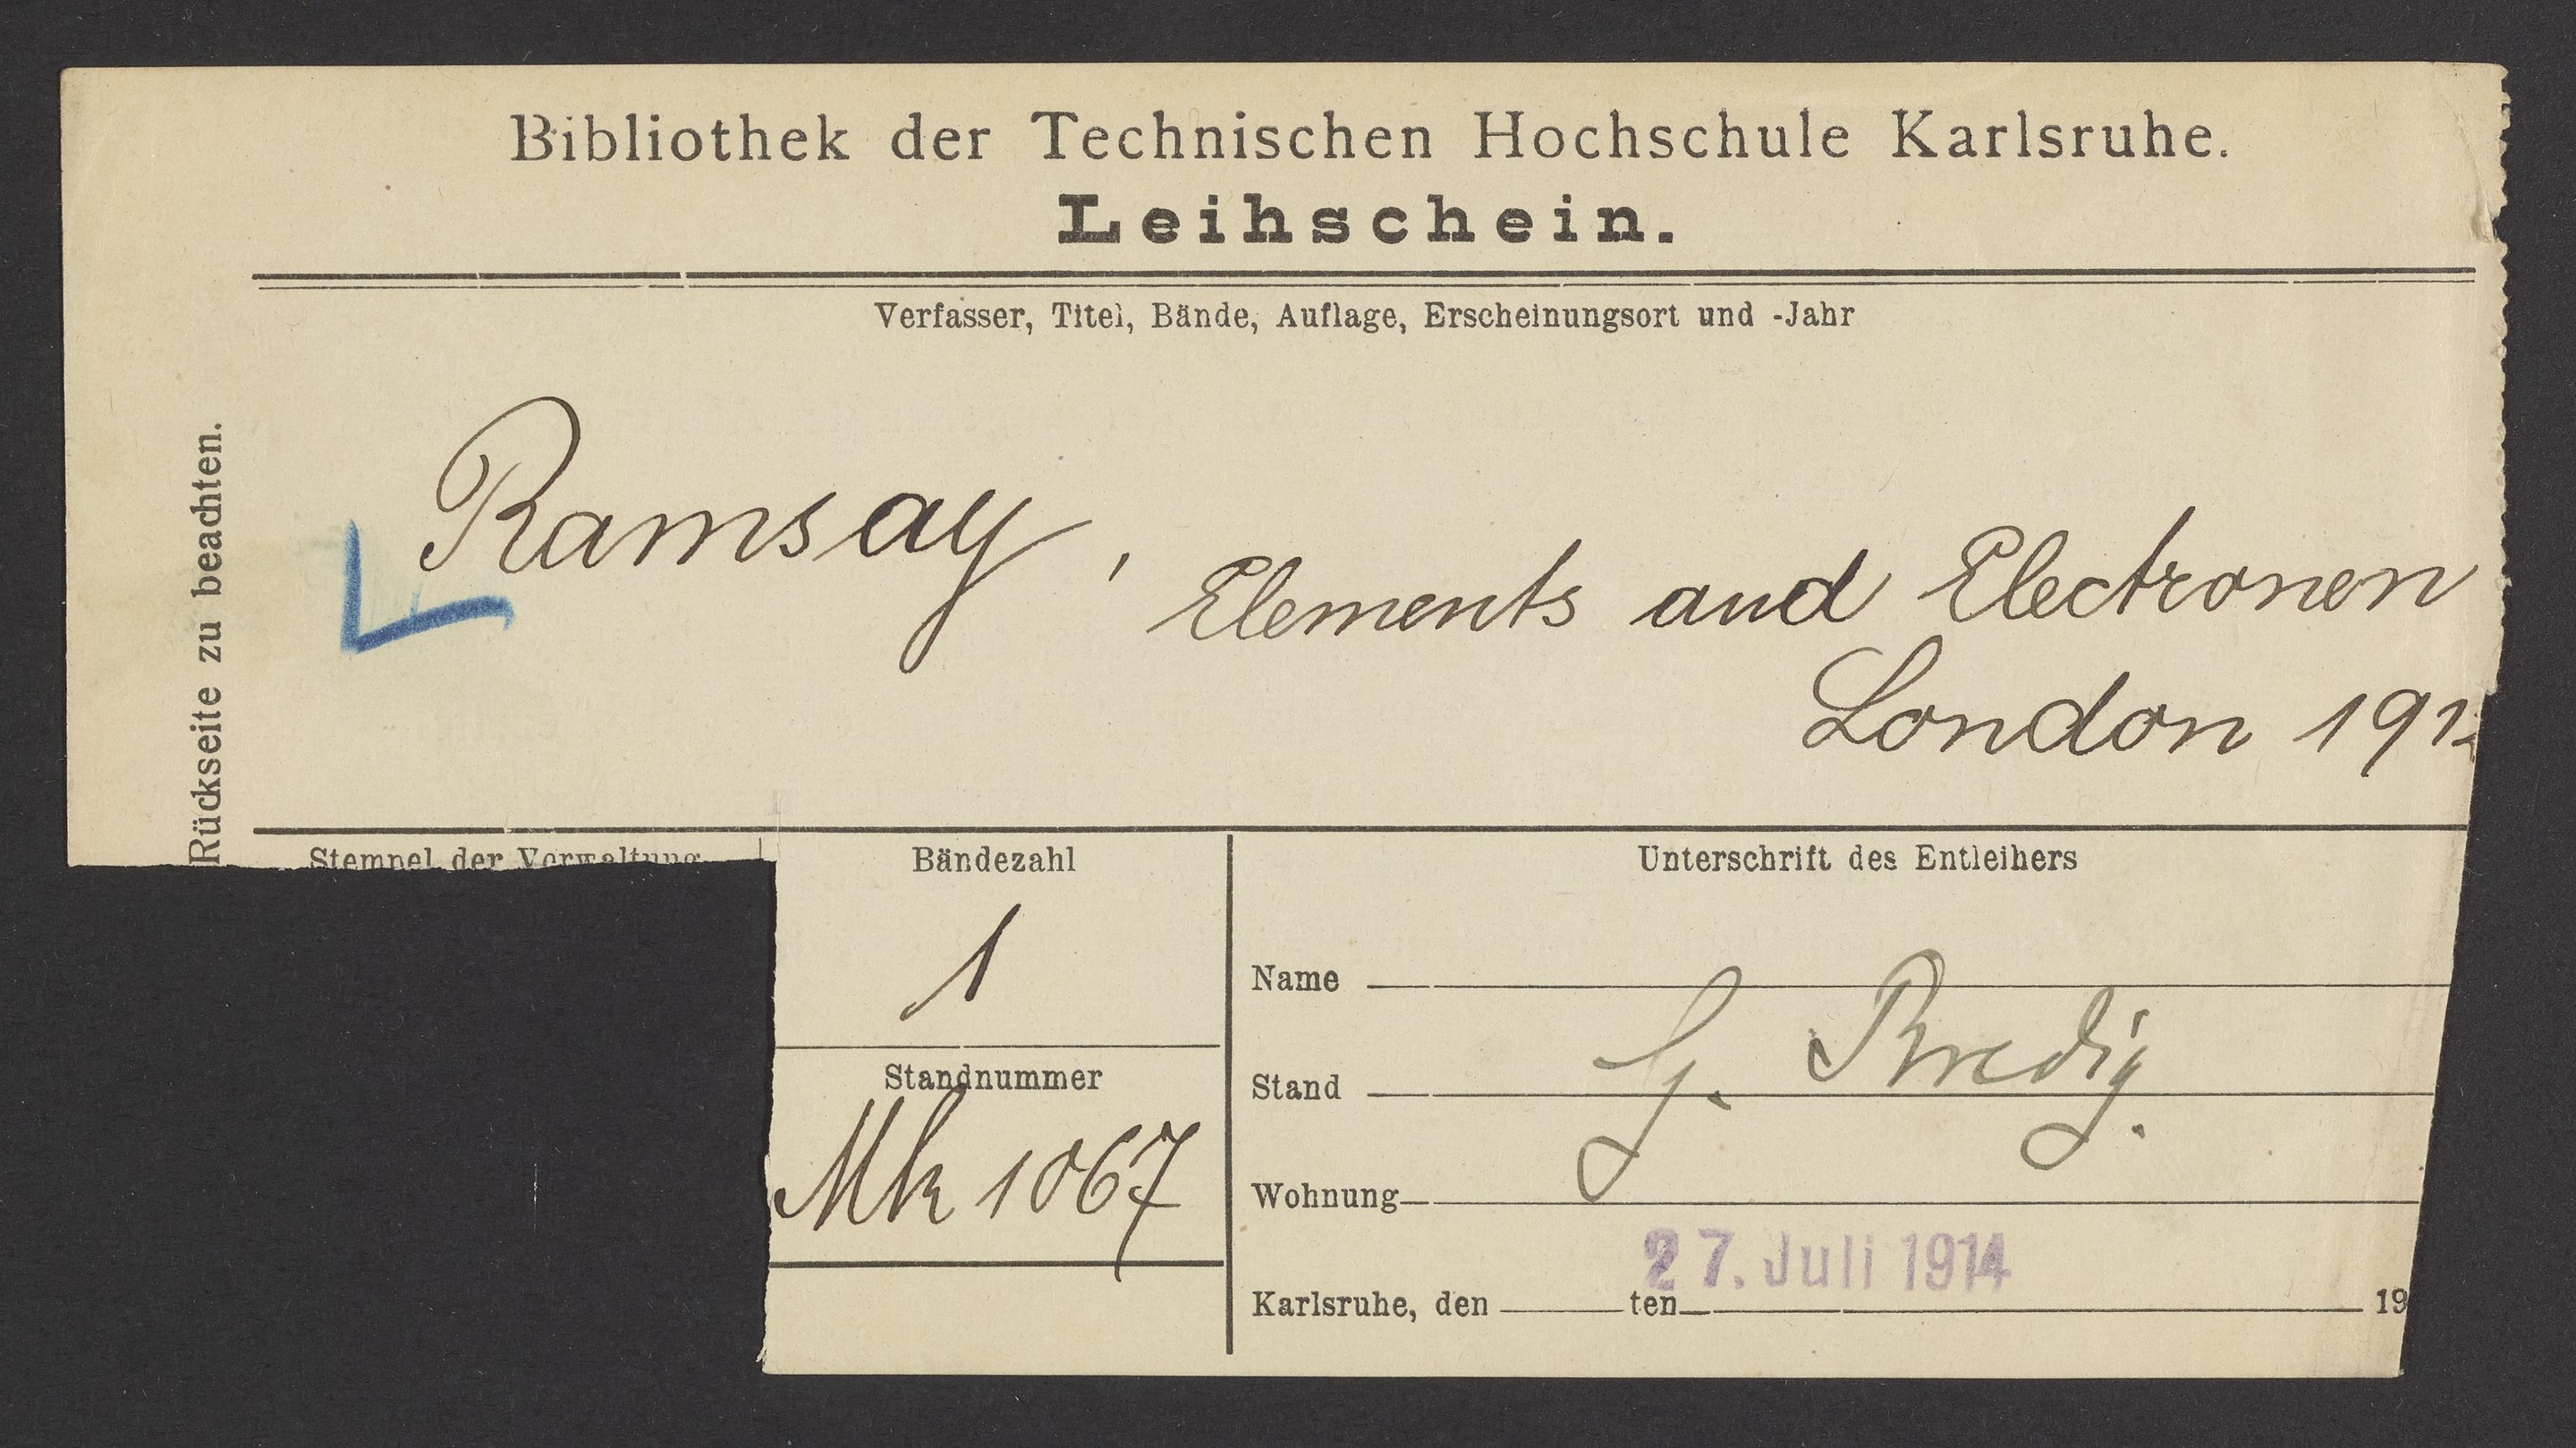 Bibliothek der Technischen Hochschule Karlsruhe.
Leihschein.
Verfasser, Titel, Bände, Auflage, Erscheinungsort und -Jahr
Rückseite zu beachten.
Ramsay, Elements and Electronen
London 1912
Stempel der Verwaltung
Bändezahl
1
Standnummer
Mk 1067
Unterschrift des Entleihers
Name
G. Bredig.
Stand
Wohnung
27. Juli 1914
Karlsruhe, den ten 19